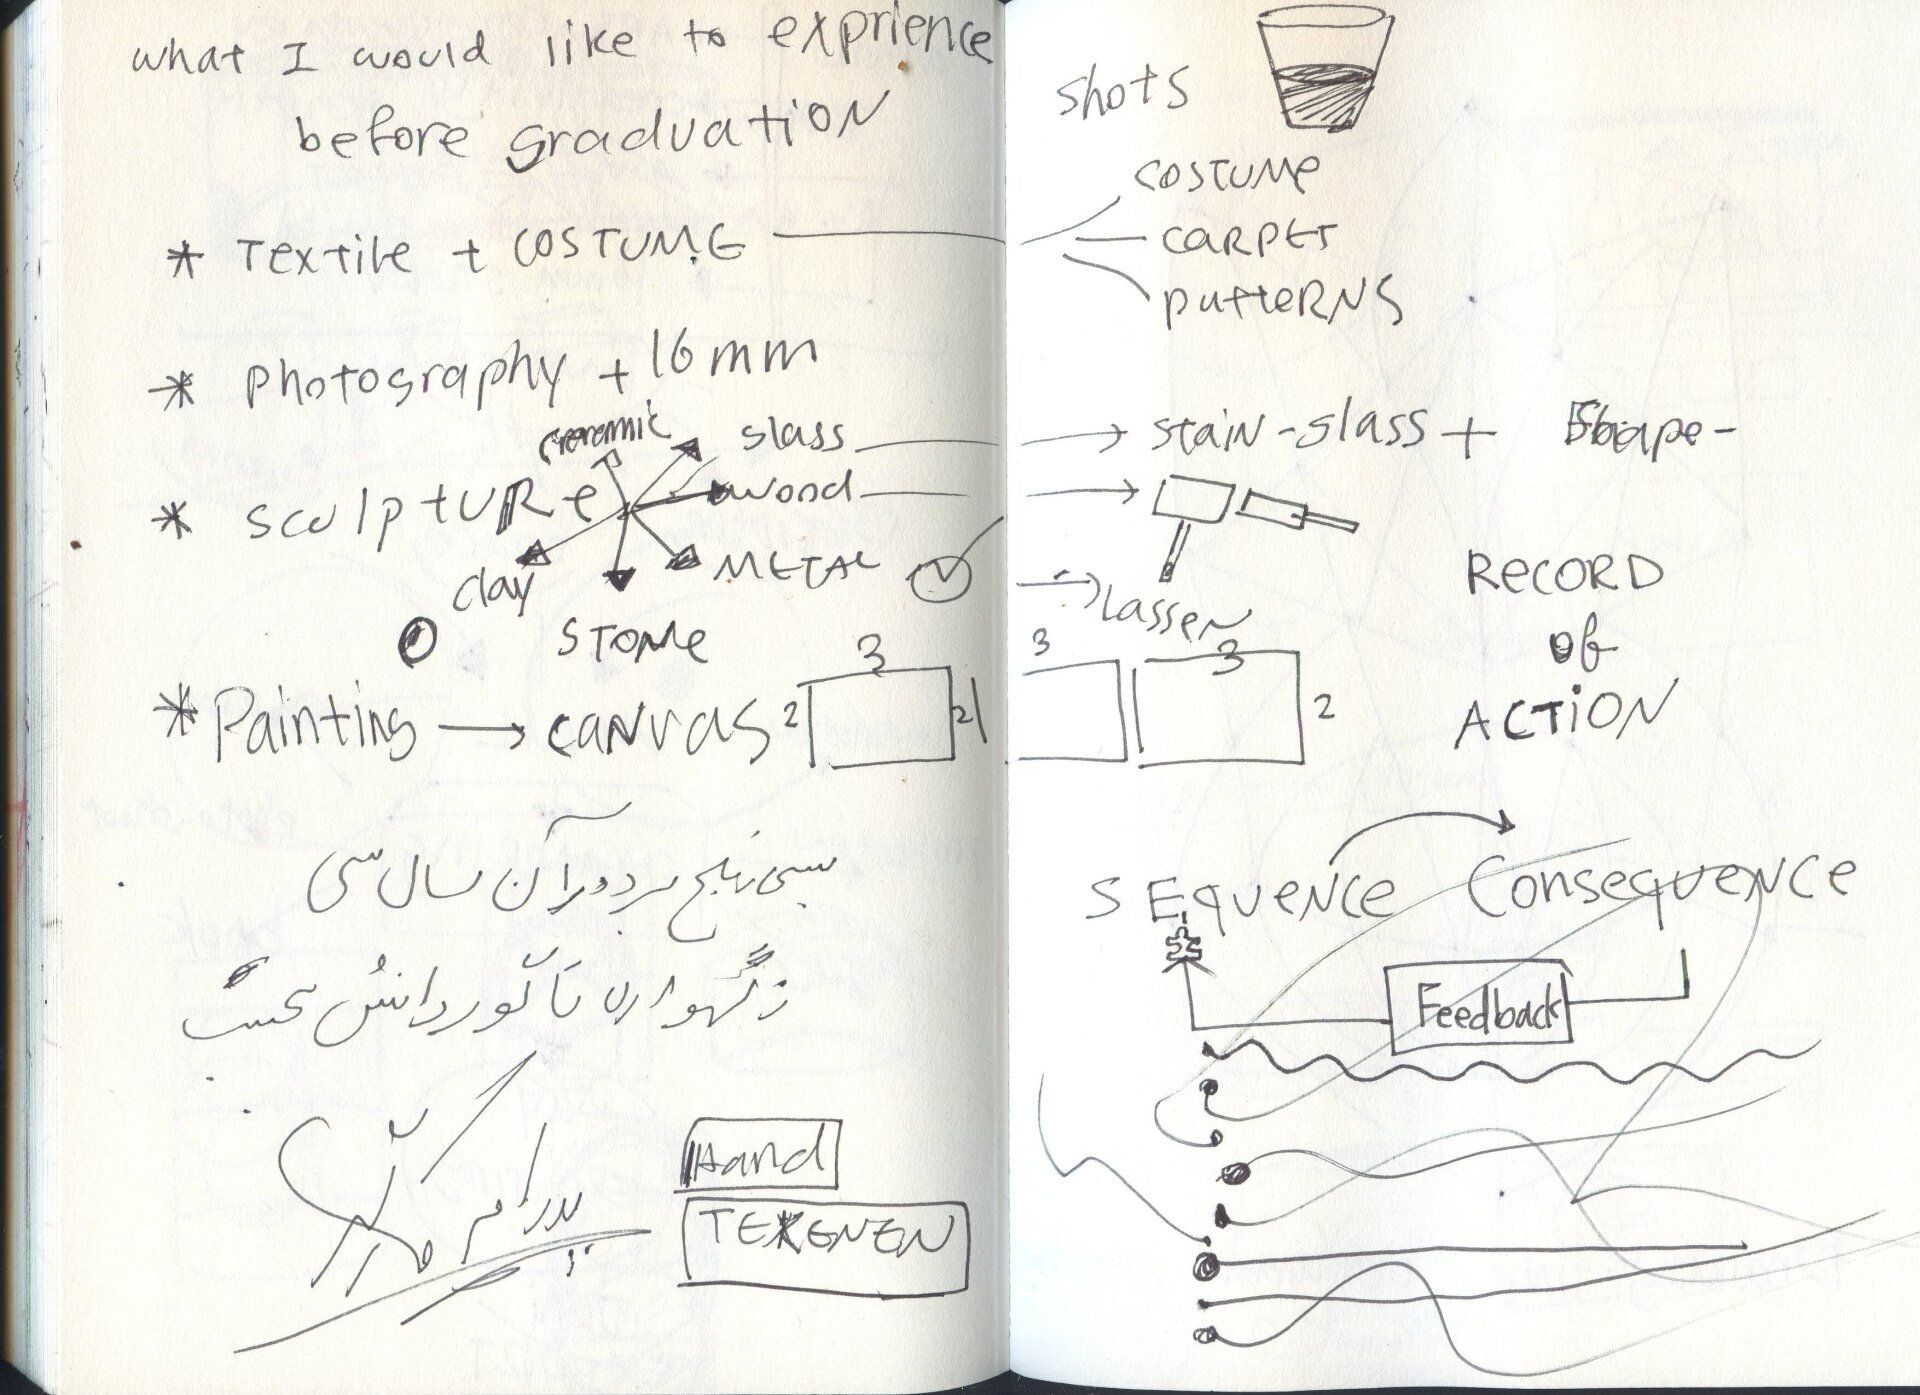 what I would like to exprience
before graduation
* Textile + COSTUME
costume
CARPET
putteRNS
shots
* Photography + 16mm
* sculptURe
ceremic
glass
wood
METAL
STONe
clay
stain-glass +
lassen
RECORD
of
ACTiON
* Painting → canvas
2
3
2
3
3
2
بسی رنج بردم در آن سال سی
ز گهواره تا گور دانش بجست
SEquence Consequence
Feedback
Hand
TEKENEN